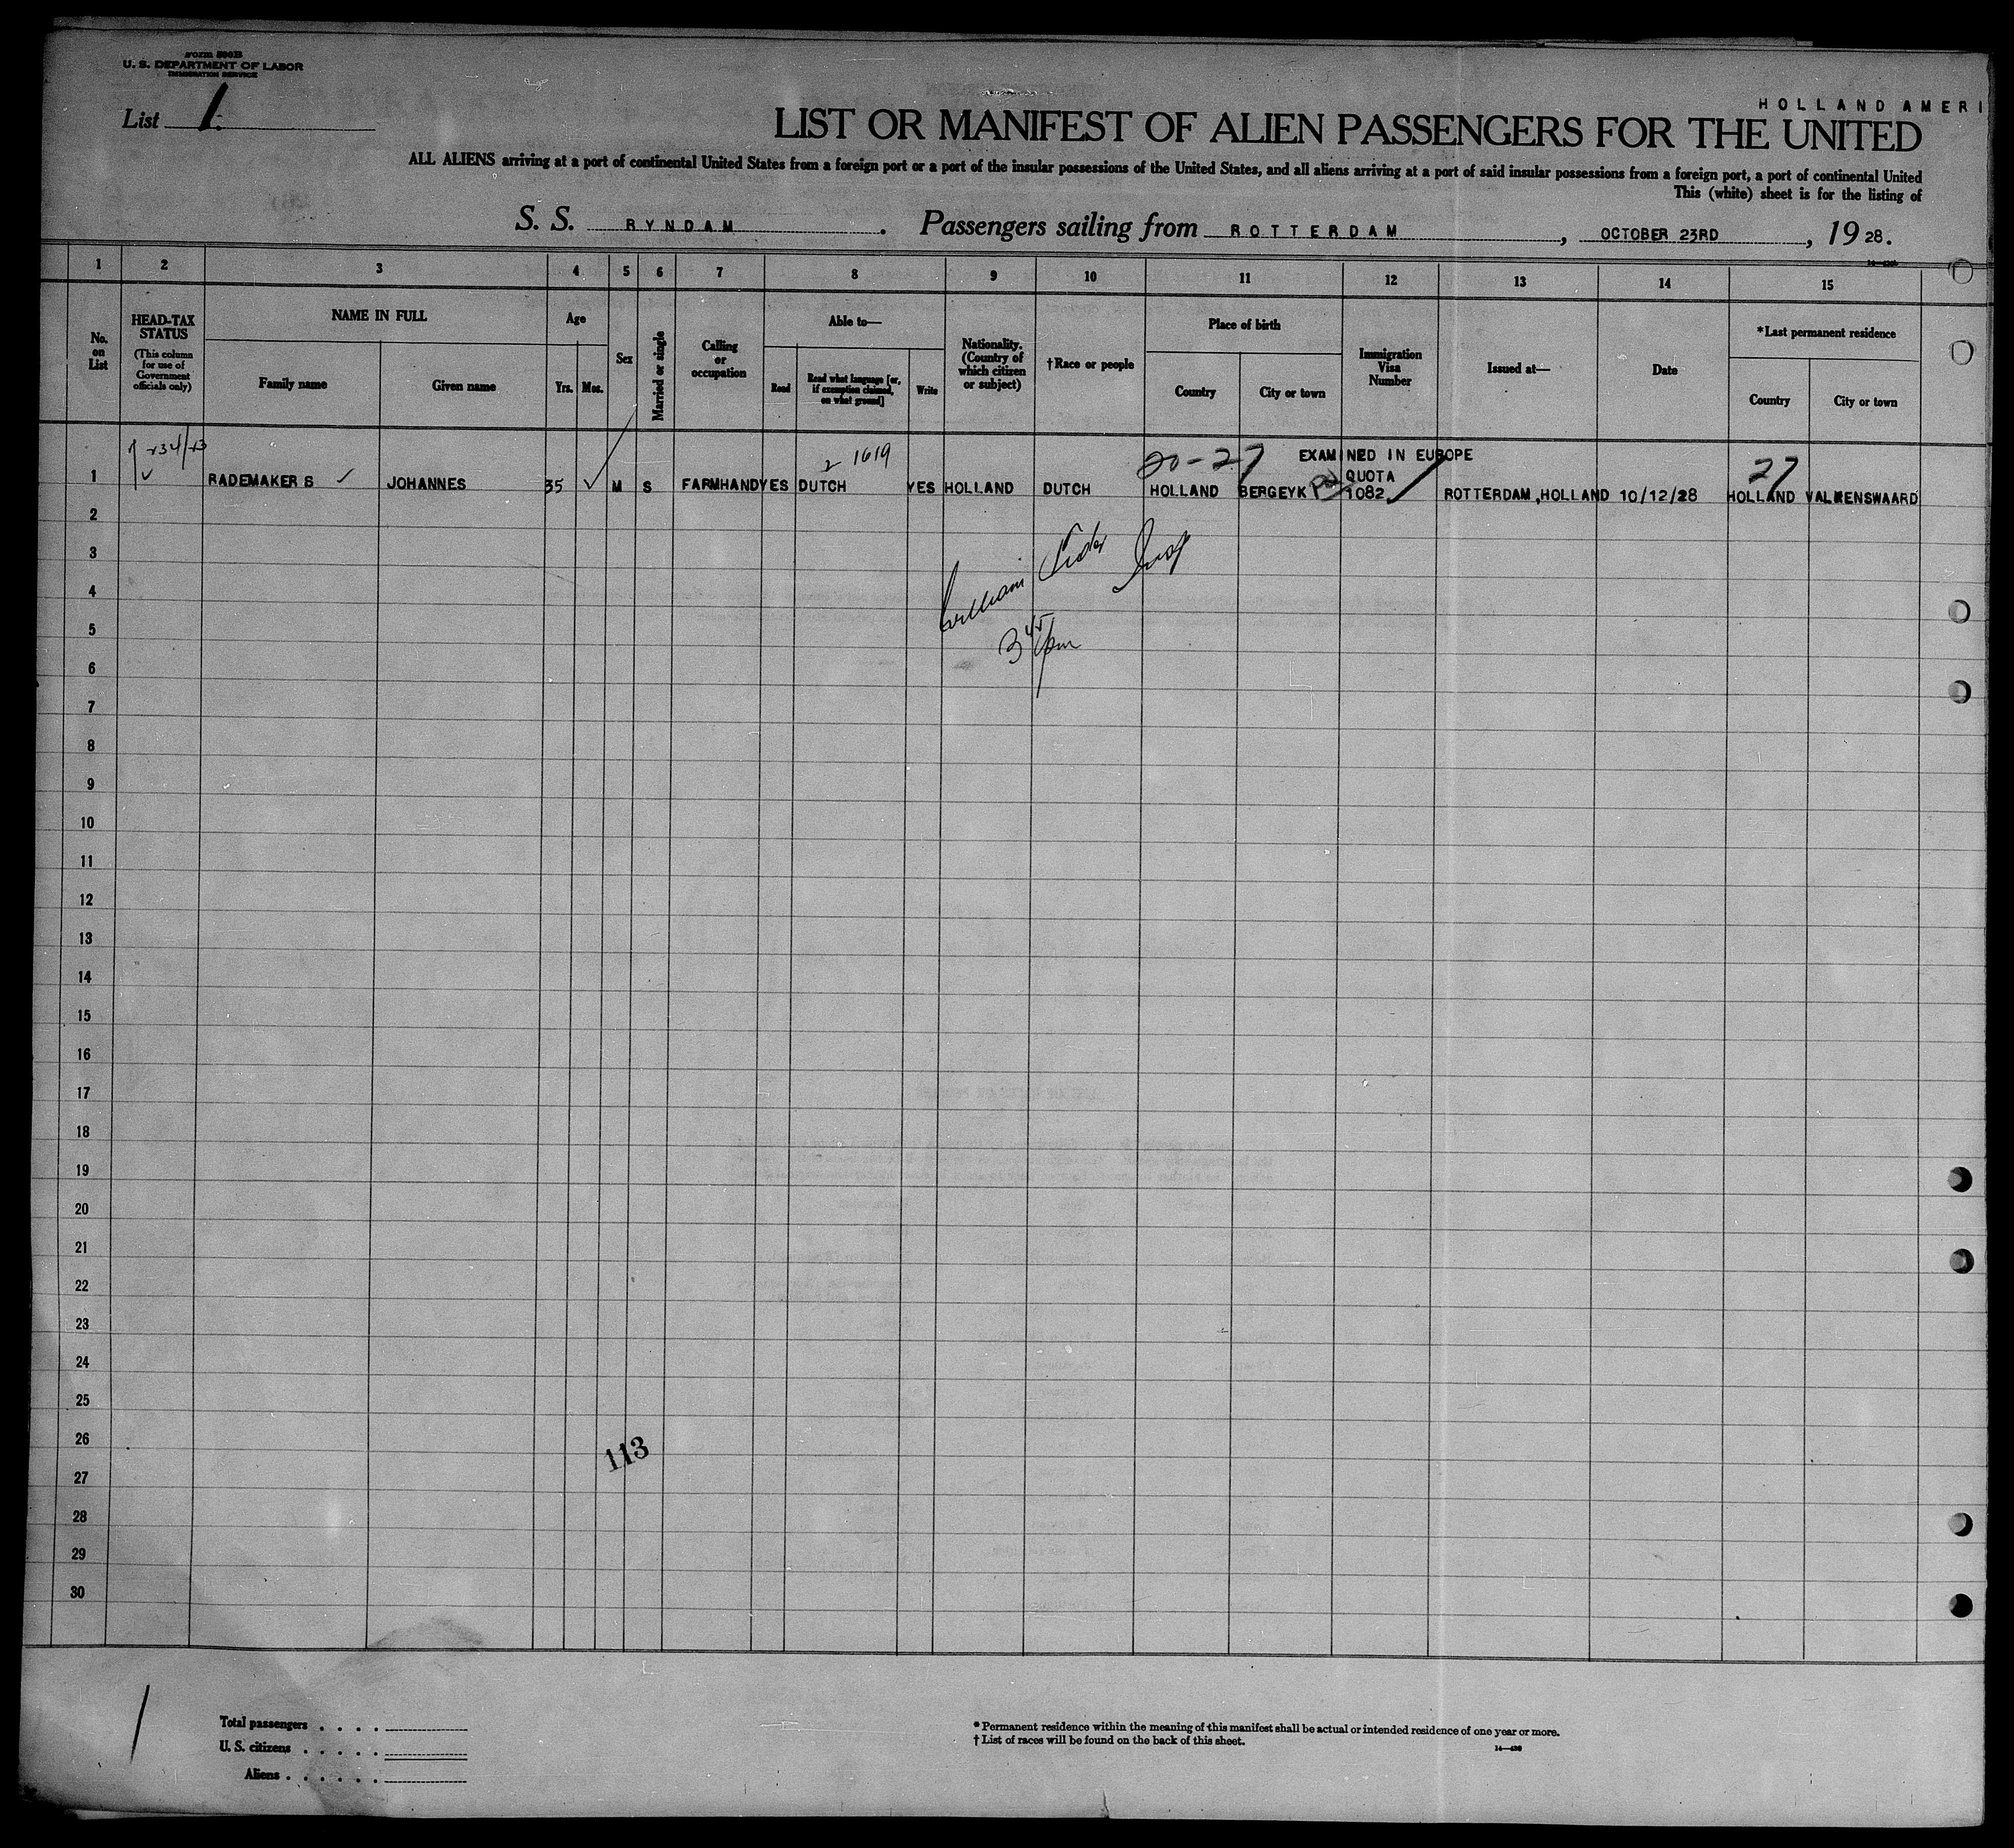 Form 500B
U. S. DEPARTMENT OF LABOR
IMMIGRATION SERVICE
List 1
HOLLAND AMERI
LIST OR MANIFEST OF ALIEN PASSENGERS FOR THE UNITED
ALL ALIENS arriving at a port of continental United States from a foreign port or a port of the insular possessions of the United States, and all aliens arriving at a port of said insular possessions from a foreign port, a port of continental United
This (white) sheet is for the listing of
S. S. RYNDAM. Passengers sailing from ROTTERDAM, OCTOBER 23RD, 19 28.
1 2 3 4 5 6 7 8 9 10 11 12 13 14 15
No. on List
HEAD-TAX STATUS
(This column for use of Government officials only)
NAME IN FULL
Family name
Given name
Age
Yrs.
Mos.
Sex
Married or single
Calling or occupation
Able to—
Read
Read what language [or, if exemption claimed, on what ground]
Write
Nationality. (Country of which citizen or subject)
†Race or people
Place of birth
Country
City or town
Immigration Visa Number
Issued at—
Date
*Last permanent residence
Country
City or town
2 1619
20-27
EXAMINED IN EUROPE
27
QUOTA
1 RADEMAKERS JOHANNES 35 M S FARMHAND YES DUTCH YES HOLLAND DUTCH HOLLAND BERGEYK 1082 ROTTERDAM, HOLLAND 10/12/28 HOLLAND VALKENSWAARD
2
3
William
4
5
3 45 pm
6
7
8
9
10
11
12
13
14
15
16
17
18
19
20
21
22
23
24
25
26
113
27
28
29
30
Total passengers . . . .
U. S. citizens . . . . .
Aliens . . . . . .
* Permanent residence within the meaning of this manifest shall be actual or intended residence of one year or more.
† List of races will be found on the back of this sheet.